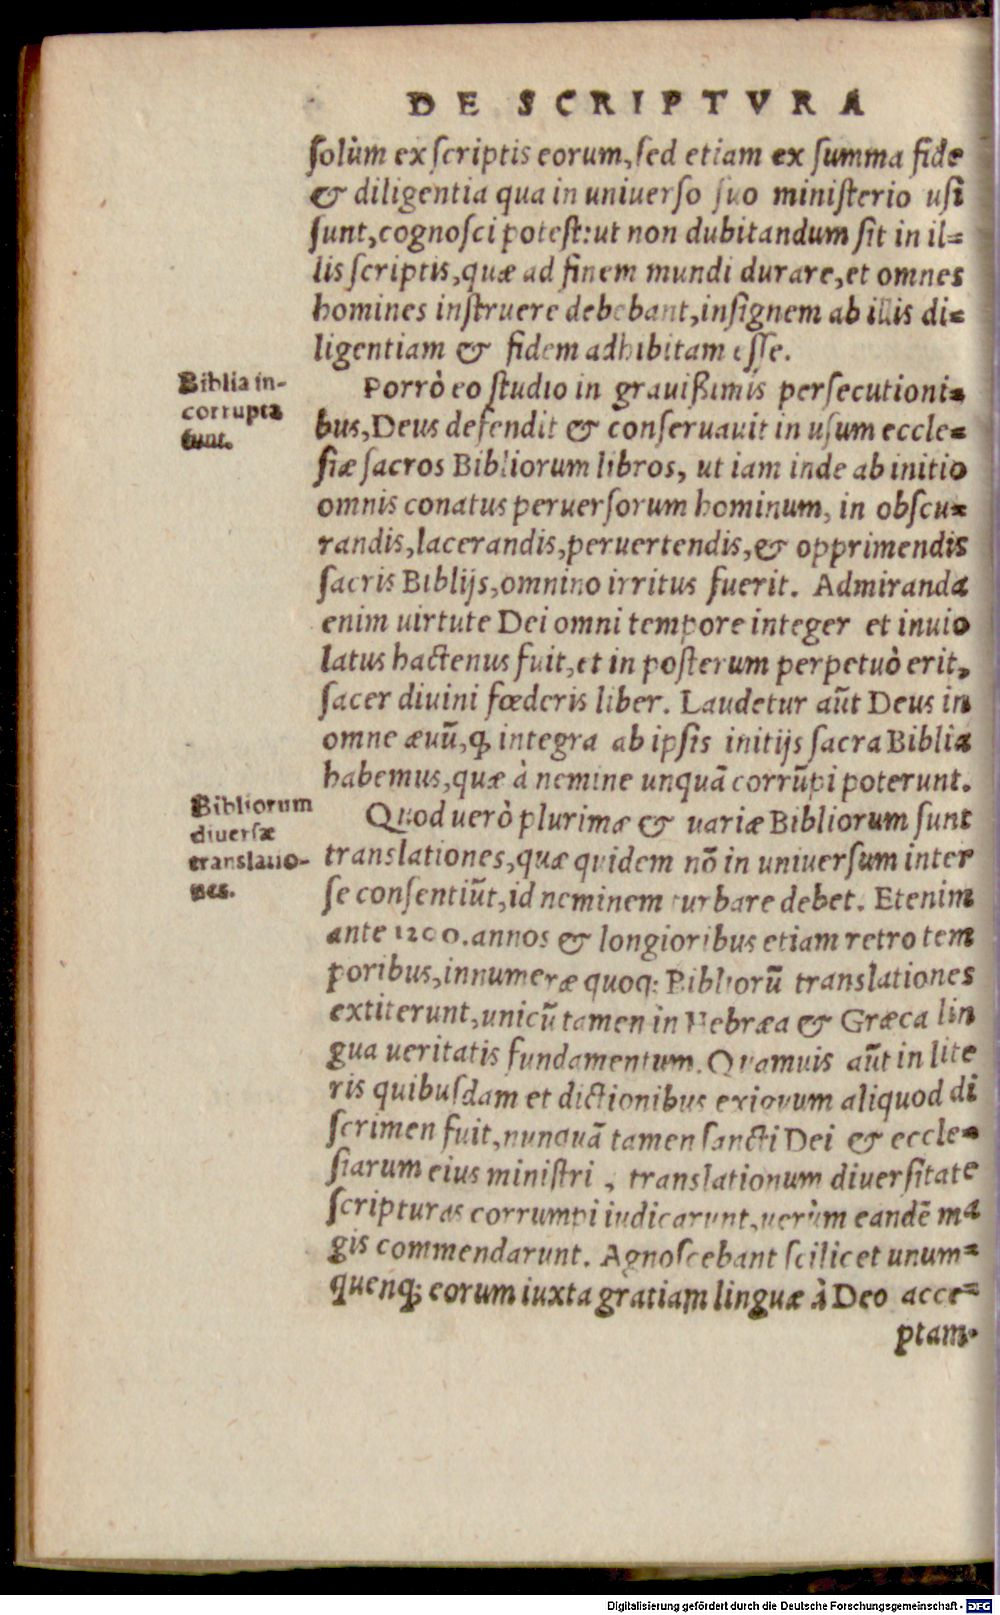 DE SCRIPTVRA
ſolùm ex ſcriptis eorum, ſed etiam ex ſumma fide
& diligentia qua in uniuerſo ſuo miniſterio uſi
ſunt, cognoſci poteſt: ut non dubitandum ſit in il=
lis ſcriptis, quæ ad finem mundi durare, et omnes
homines inſtruere debebant, inſignem ab illis di=
ligentiam & fidem adhibitam eſſe.
Biblia in-
corrupta
ſunt.
Porrò eo ſtudio in grauißimis perſecutioni=
bus, Deus defendit & conſeruauit in uſum eccle=
ſiæ ſacros Bibliorum libros, ut iam inde ab initio
omnis conatus peruerſorum hominum, in obſcu=
randis, lacerandis, peruertendis, & opprimendis
ſacris Biblijs, omnino irritus fuerit. Admiranda
enim uirtute Dei omni tempore integer et inuio
latus hactenus fuit, et in poſterum perpetuò erit,
ſacer diuini fœderis liber. Laudetur aūt Deus in
omne æuū, ꝙ integra ab ipſis initijs ſacra Biblia
habemus, quæ à nemine unquã corrūpi poterunt.
Bibliorum
diuerſæ
translatio-
nes.
Quod uerò plurimæ & uariæ Bibliorum ſunt
translationes, quæ quidem nõ in uniuerſum inter
ſe conſentiūt, id neminem turbare debet. Etenim
ante 1200. annos & longioribus etiam retro tem
poribus, innumeræ quoq; Bibliorū translationes
extiterunt, unicū tamen in Hebræa & Græca lin
gua ueritatis fundamentum. Quamuis aūt in lite
ris quibuſdam et dictionibus exiguum aliquod di
ſcrimen fuit, nunquã tamen ſancti Dei & eccle=
ſiarum eius miniſtri, translationum diuerſitate
ſcripturas corrumpi iudicarunt, uerùm eandẽ ma
gis commendarunt. Agnoſcebant ſcilicet unum=
quenq; eorum iuxta gratiam linguæ à Deo acce=
ptam.
Digitalisierung gefördert durch die Deutsche Forschungsgemeinschaft - DFG